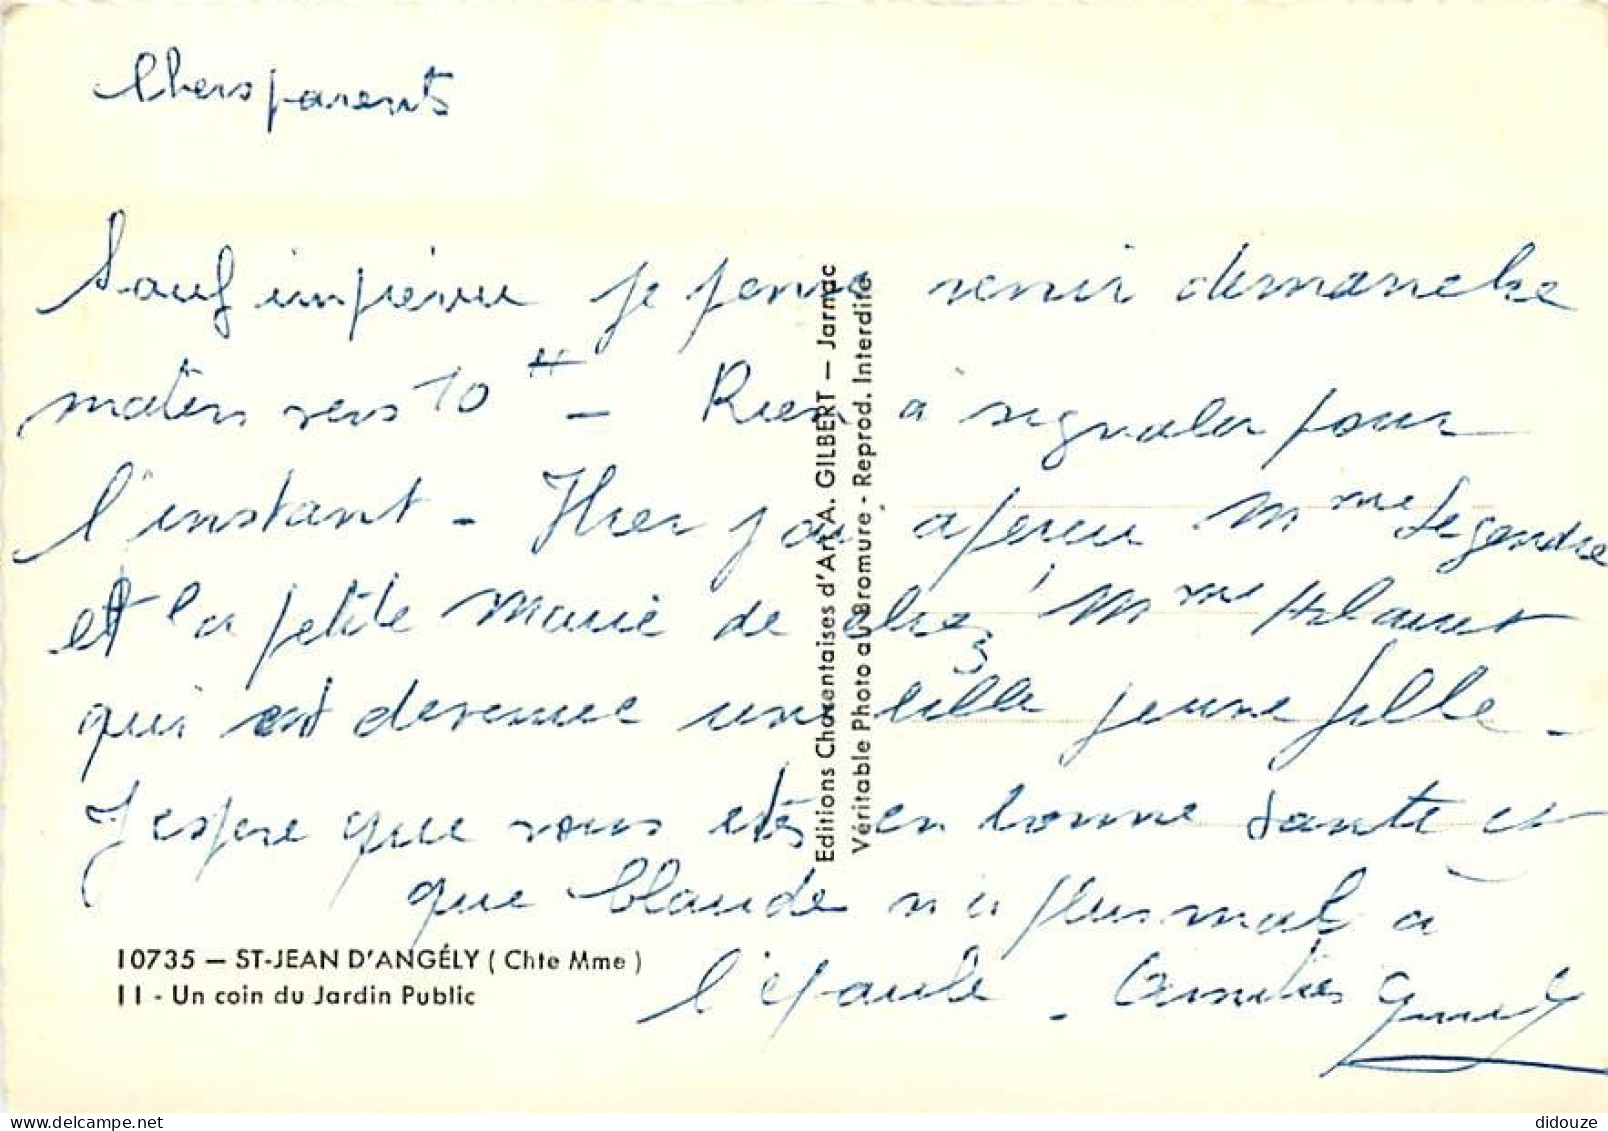 Chers parents
Sauf imprévu je pense venir dimanche
matin vers 10 H - Rien à signaler pour
l'instant - Hier j'ai aperçu Mme Legendre
et la petite Marie de chez Mme
qui est devenue une belle jeune fille -
J'espère que vous êtes en bonne santé et
que Claude n'a plus mal à
l'épaule - Amitiés
10735 — ST-JEAN D'ANGÉLY ( Chte Mme )
11 - Un coin du Jardin Public
Editions Charentaises d'Art A. GILBERT — Jarnac
Véritable Photo au Bromure - Reprod. Interdite
didouze